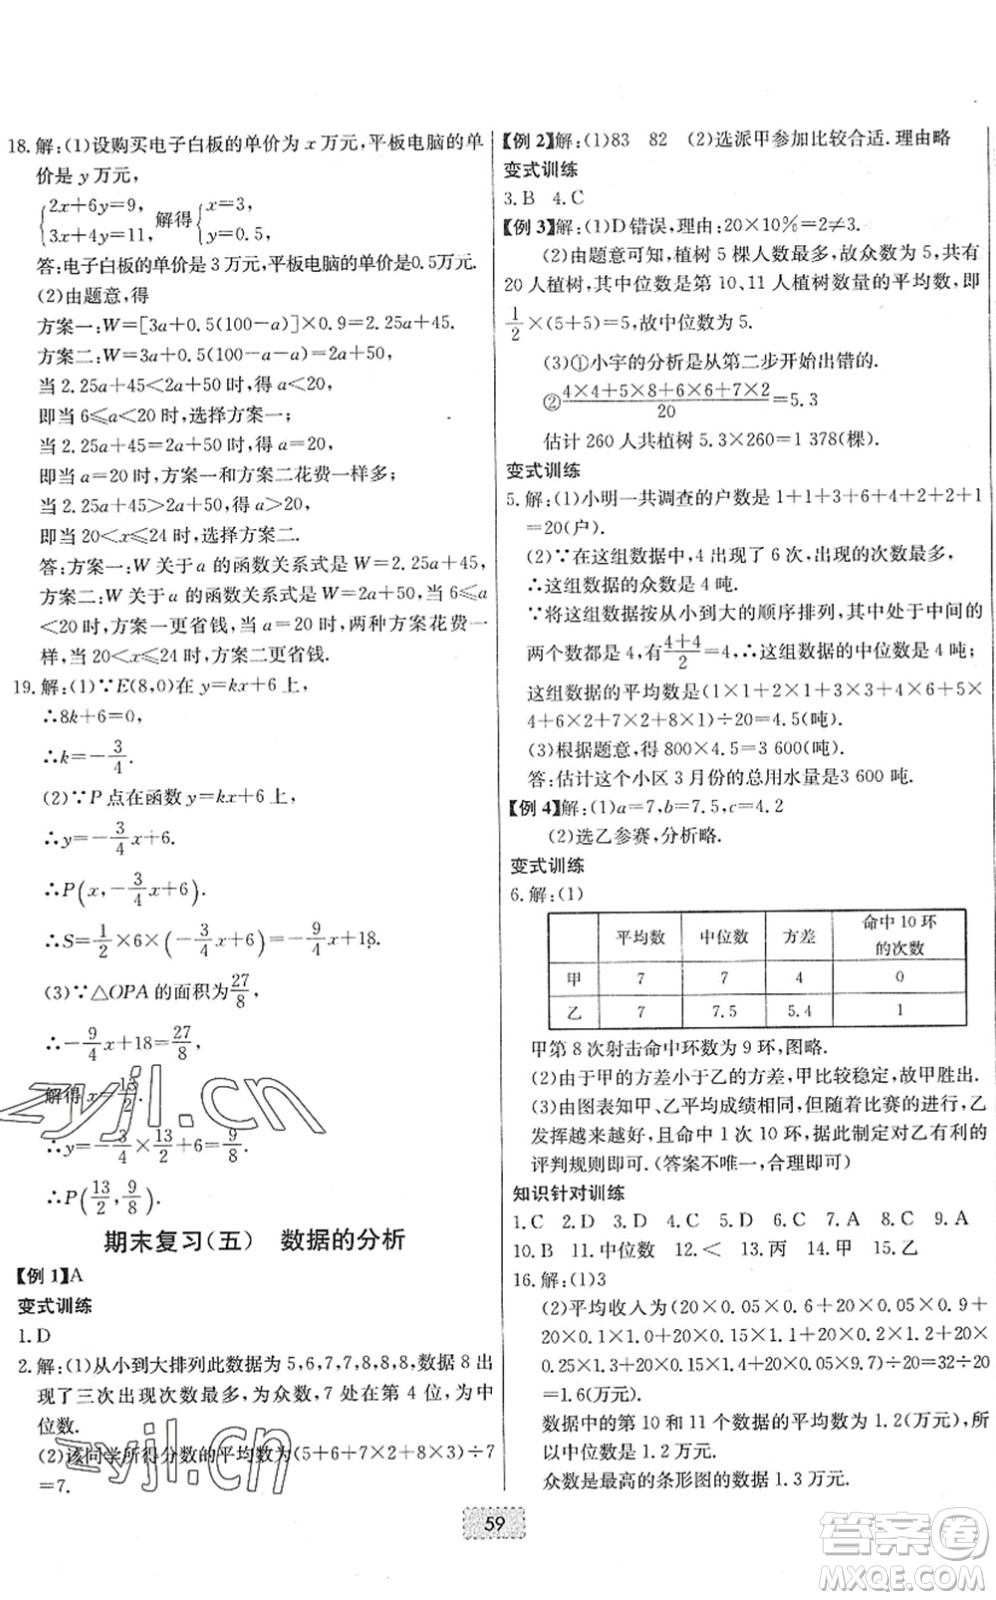 18. 解:(1)设购买电子白板的单价为 x 万元,平板电脑的单
价是 y 万元,
{2x+6y=9, 3x+4y=11, 解得 {x=3, y=0.5,
答:电子白板的单价是 3 万元,平板电脑的单价是0.5万元.
(2)由题意,得
方案一:W=[3a+0.5(100-a)]×0.9=2.25a+45.
方案二:W=3a+0.5(100-a-a)=2a+50,
当 2.25a+45<2a+50 时,得 a<20,
即当 6≤a<20 时,选择方案一;
当 2.25a+45=2a+50 时,得 a=20,
即当 a=20 时,方案一和方案二花费一样多;
当 2.25a+45>2a+50 时,得 a>20,
即当 20<x≤24 时,选择方案二.
答:方案一:W 关于 a 的函数关系式是 W=2.25a+45,
方案二:W 关于 a 的函数关系式是 W=2a+50,当 6≤a
<20 时,方案一更省钱,当 a=20 时,两种方案花费一
样,当 20<x≤24 时,方案二更省钱.
19. 解:(1)∵E(8,0)在 y=kx+6 上,
∴8k+6=0,
∴k=-3/4.
(2)∵P 点在函数 y=kx+6 上,
∴y=-3/4x+6.
∴P(x,-3/4x+6).
∴S=1/2×6×(-3/4x+6)=-9/4x+18.
(3)∵△OPA 的面积为27/8,
∴-9/4x+18=27/8,
解得 x=13/2.
∴y=-3/4×13/2+6=9/8.
∴P(13/2,9/8).
期末复习(五) 数据的分析
【例 1】A
变式训练
1. D
2. 解:(1)从小到大排列此数据为 5,6,7,7,8,8,8,数据 8 出
现了三次出现次数最多,为众数,7 处在第 4 位,为中
位数.
(2)该同学所得分数的平均数为(5+6+7×2+8×3)÷7
=7.
【例 2】解:(1)83 82 (2)选派甲参加比较合适.理由略
变式训练
3. B 4. C
【例 3】解:(1)D 错误,理由:20×10%=2≠3.
(2)由题意可知,植树 5 棵人数最多,故众数为 5,共有
20 人植树,其中位数是第 10、11 人植树数量的平均数,即
1/2×(5+5)=5,故中位数为 5.
(3)①小宇的分析是从第二步开始出错的.
②(4×4+5×8+6×6+7×2)/20=5.3
估计 260 人共植树 5.3×260=1 378(棵).
变式训练
5. 解:(1)小明一共调查的户数是 1+1+3+6+4+2+2+1
=20(户).
(2)∵在这组数据中,4 出现了 6 次,出现的次数最多,
∴这组数据的众数是 4 吨.
∵将这组数据按从小到大的顺序排列,其中处于中间的
两个数都是 4,有(4+4)/2=4,∴这组数据的中位数是 4 吨;
这组数据的平均数是(1×1+1×2+3×3+4×6+5×
4+6×2+7×2+8×1)÷20=4.5(吨).
(3)根据题意,得 800×4.5=3 600(吨).
答:估计这个小区 3 月份的总用水量是 3 600 吨.
【例 4】解:(1)a=7,b=7.5,c=4.2
(2)选乙参赛,分析略.
变式训练
6. 解:(1)
平均数 中位数 方差 命中 10 环的次数
甲 7 7 4 0
乙 7 7.5 5.4 1
甲第 8 次射击命中环数为 9 环,图略.
(2)由于甲的方差小于乙的方差,甲比较稳定,故甲胜出.
(3)由图表知甲、乙平均成绩相同,随着比赛的进行,乙
发挥越来越好,且命中 1 次 10 环,据此制定对乙有利的
评判规则即可.(答案不唯一,合理即可)
知识针对训练
1. C 2. D 3. D 4. C 5. D 6. C 7. A 8. C 9. A
10. B 11. 中位数 12. < 13. 丙 14. 甲 15. 乙
16. 解:(1)3
(2)平均收入为(20×0.05×0.6+20×0.05×0.9+
20×0.15×1.0+20×0.15×1.1+20×0.2×1.2+0.25×20
×1.3+0.1×20×4+20×0.05×9.7)÷20=32÷20
=1.6(万元).
数据中的第 10 和 11 个数据的平均数为 1.2(万元),所
以中位数是 1.2 万元.
众数是最高的条形图的数据 1.3 万元.
59
zyjl.cn
zyjl.cn
答案圈
MXQE.COM